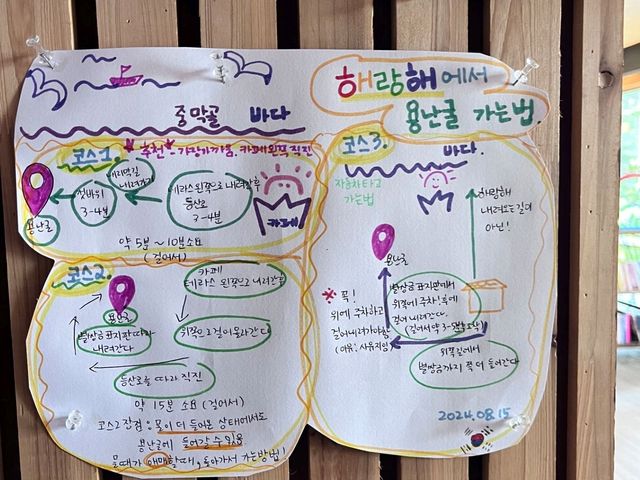 해랑해에서
용난굴 가는법.
중막골 바다
코스1. 추천 가장가까움, 카페왼쪽직진
테라스 왼쪽으로 내려간후
등산로
3~4분
내려가기
3~4분
용난굴
카페
약 5분 ~ 10분소요
(걸어서)
코스2.
카페
테라스 왼쪽으로 내려간다
위쪽으로걸어올라간다
등산로를 따라 직진
별쌍금표지판 따라
내려간다
용난굴
약 15분 소요 (걸어서)
코스2 장점 : 물이 더 들어온 상태에서도
용난굴에 들어갈 수 있음
물때가 애매할때, 돌아가서 가는방법!
코스3.
바다.
자동차타고
가는법
해랑해
내려오는길이
아닌!
용난굴
별쌍금 표지판에서
위쪽에 주차! 후에
걸어 내려간다.
꼭!
위에 주차하고
걸어내려가야함
(이유: 사유지임)
위쪽길에서
별쌍금까지 쭉 더 들어간다
2024.08.15